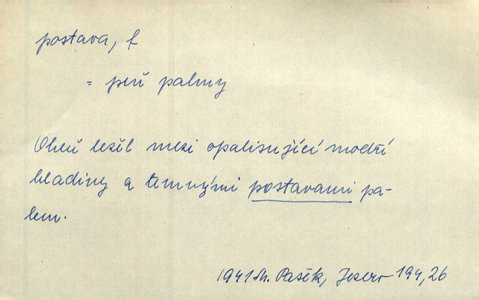 postava, f
= peň palmy
Oheň ležel mezi opalisující modří
hladiny a temnými postavami pa-
lem.
1941 M. Pašek, Jezero 194,26